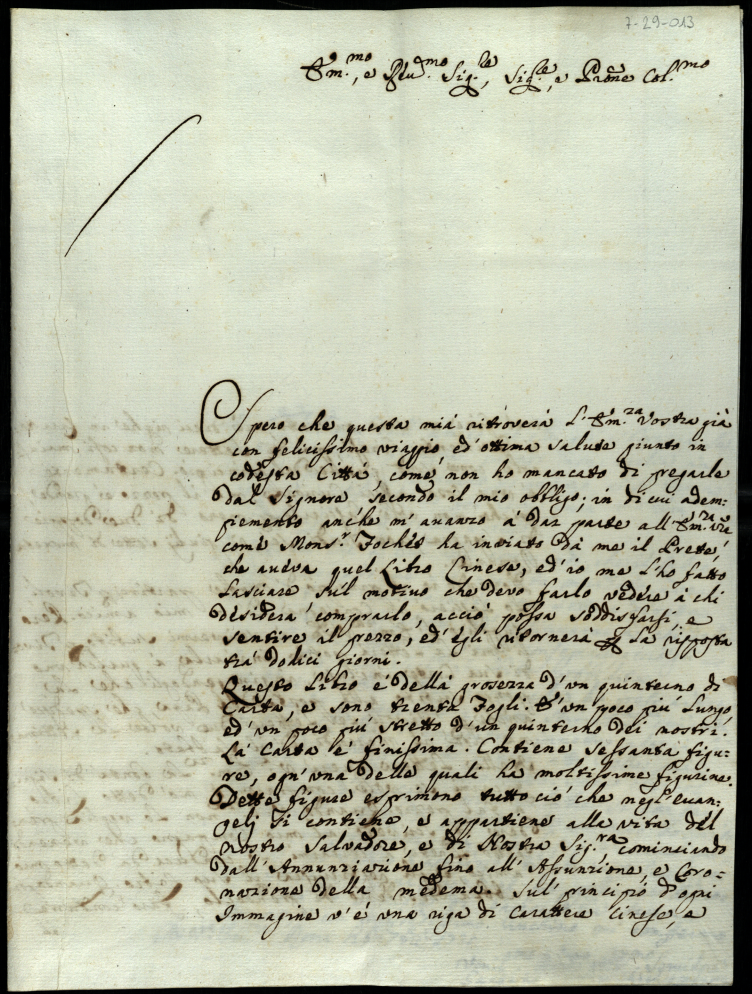 7-29-013
Em.mo, e Rev.mo Sig.re, Sig.re, e Prōne Col.mo
Spero che questa mia ritroverà L'Em.za Vostra già
con felicissimo viaggio, ed' ottima salute giunto in
codesta Città, come non ho mancato di pregarle
dal Signore secondo il mio obbligo; in di cui adem=
piemento anche m' avanzo à dar parte all' Em.za Vrã
come Mons.r Fochès ha inviato dà me il Prete,
che aveva quel Libro Cinese, ed' io me l' ho fatto
Lasciare sul motivo che devo farlo vedere à chi
desidera comprarlo, acciò possa soddisfarsi, e
sentire il prezzo, ed' egli ritornerà La risposta
trà dodici giorni.
Questo Libro è della grosezza d' un quinterno di
Carta, e sono trenta Fogli. E' un poco più Lungo
ed' un poco più stretto d' un quinterno dei nostri.
La Carta è finissima. Contiene sessanta figu=
re, ogn' una delle quali ha moltissime figurine.
Dette figure esprimono tutto ciò che negl' Evan=
gelj si contiene, e appartiene alla vita del
Nostro Salvadore, e di Nostra Sig.ra cominciando
dall' Annunziazione fino all' Assunzione, e Coro=
nazione della medema. Sul' principio d' ogni
Immagine v' è una riga di Carattere Cinese, e